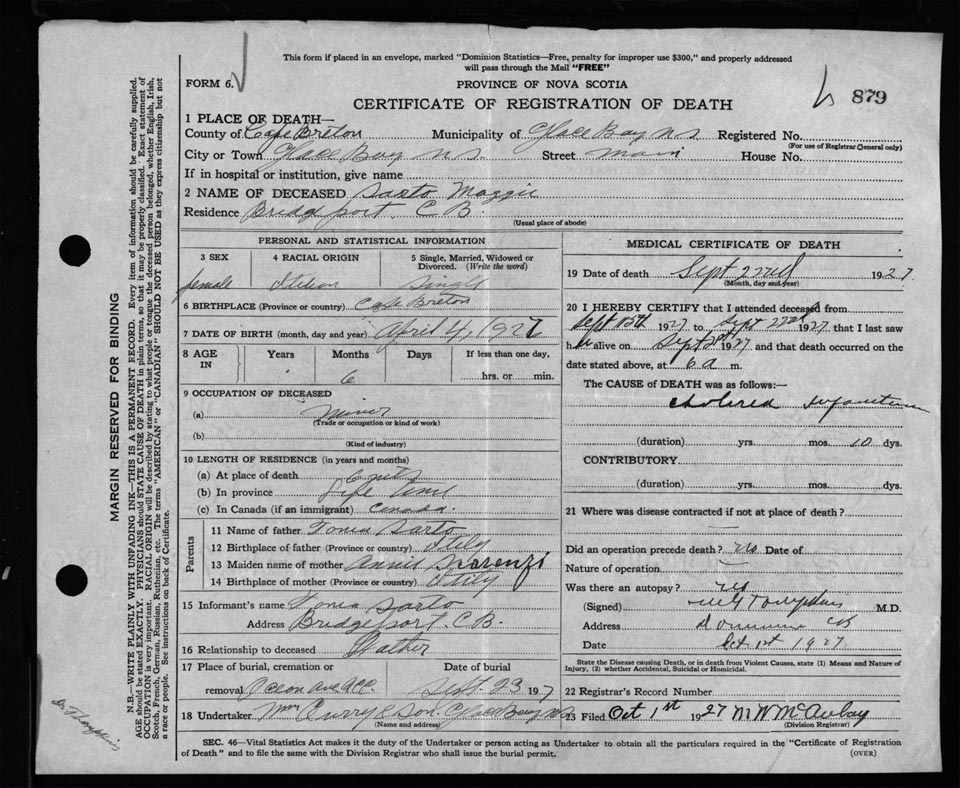 This form if placed in an envelope, marked "Dominion Statistics—Free, penalty for improper use $300," and properly addressed
will pass through the Mail "FREE"
FORM 6.
PROVINCE OF NOVA SCOTIA
879
CERTIFICATE OF REGISTRATION OF DEATH
1 PLACE OF DEATH—
County of Cape Breton Municipality of Glace Bay N S Registered No.
(For use of Registrar General only)
City or Town Glace Bay N S. Street Main House No.
If in hospital or institution, give name
2 NAME OF DECEASED Sarto Maggie
Residence Bridgeport C B.
(Usual place of abode)
PERSONAL AND STATISTICAL INFORMATION
3 SEX 4 RACIAL ORIGIN 5 Single, Married, Widowed or Divorced. (Write the word)
female single
6 BIRTHPLACE (Province or country) Cape Breton
7 DATE OF BIRTH (month, day and year) April 4, 1927
8 AGE IN Years Months Days If less than one day,
6 hrs. or min.
9 OCCUPATION OF DECEASED
(a) Minor
(Trade or occupation or kind of work)
(b)
(Kind of industry)
10 LENGTH OF RESIDENCE (in years and months)
(a) At place of death 6 mths
(b) In province Life time
(c) In Canada (if an immigrant) Canada.
Parents
11 Name of father Tonia Sarto
12 Birthplace of father (Province or country) Itily
13 Maiden name of mother Annie
14 Birthplace of mother (Province or country) Itily
15 Informant's name Tonia Sarto
Address Bridgeport. C.B.
16 Relationship to deceased Father
17 Place of burial, cremation or Date of burial
removal Ocean Ave Sept. 23 1927
18 Undertaker Wm Curry & Son. Glace Bay N S
(Name and address)
MEDICAL CERTIFICATE OF DEATH
19 Date of death Sept 22nd 1927
(Month, day and year)
20 I HEREBY CERTIFY that I attended deceased from
Sept 15th 1927 to Sept 22nd 1927, that I last saw
h alive on Sept 1927 and that death occurred on the
date stated above, at 6 a m.
The CAUSE of DEATH was as follows:
Cholera Infantum
(duration) yrs. mos. 10 dys.
CONTRIBUTORY
(duration) yrs. mos. dys.
21 Where was disease contracted if not at place of death?
Did an operation precede death? no Date of
Nature of operation
Was there an autopsy? no
(Signed) Tompkins M.D.
Address Dominion CB
Date Oct 1st 1927
State the Disease causing Death, or in death from Violent Causes, state (1) Means and Nature of
Injury, (2) whether Accidental, Suicidal or Homicidal.
22 Registrar's Record Number
23 Filed Oct 1st 1927 M W McAulay
(Division Registrar)
SEC. 46—Vital Statistics Act makes it the duty of the Undertaker or person acting as Undertaker to obtain all the particulars required in the "Certificate of Registration
of Death" and to file the same with the Division Registrar who shall issue the burial permit. (OVER)
MARGIN RESERVED FOR BINDING
N.B.—WRITE PLAINLY WITH UNFADING INK—THIS IS A PERMANENT RECORD. Every item of information should be carefully supplied.
AGE should be stated EXACTLY. PHYSICIANS should STATE CAUSE OF DEATH in plain terms, so that it may be properly classified. Exact statement of
OCCUPATION is very important. RACIAL ORIGIN will be described by stating to what people or tongue the deceased person belonged, whether English, Irish,
Scotch, French, German, Russian, Ruthenian, etc. The terms "AMERICAN" or "CANADIAN" SHOULD NOT BE USED as they express citizenship but not
a race or people. See instructions on back of Certificate.
Dr Thompkins